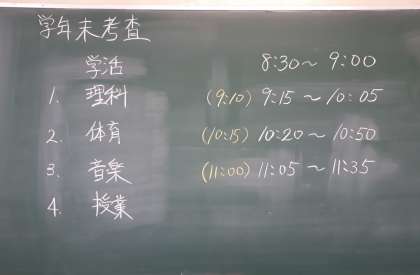 学年末考査
学活 8:30～9:00
1. 理科 (9:10) 9:15～10:05
2. 体育 (10:15) 10:20～10:50
3. 音楽 (11:00) 11:05～11:35
4. 授業